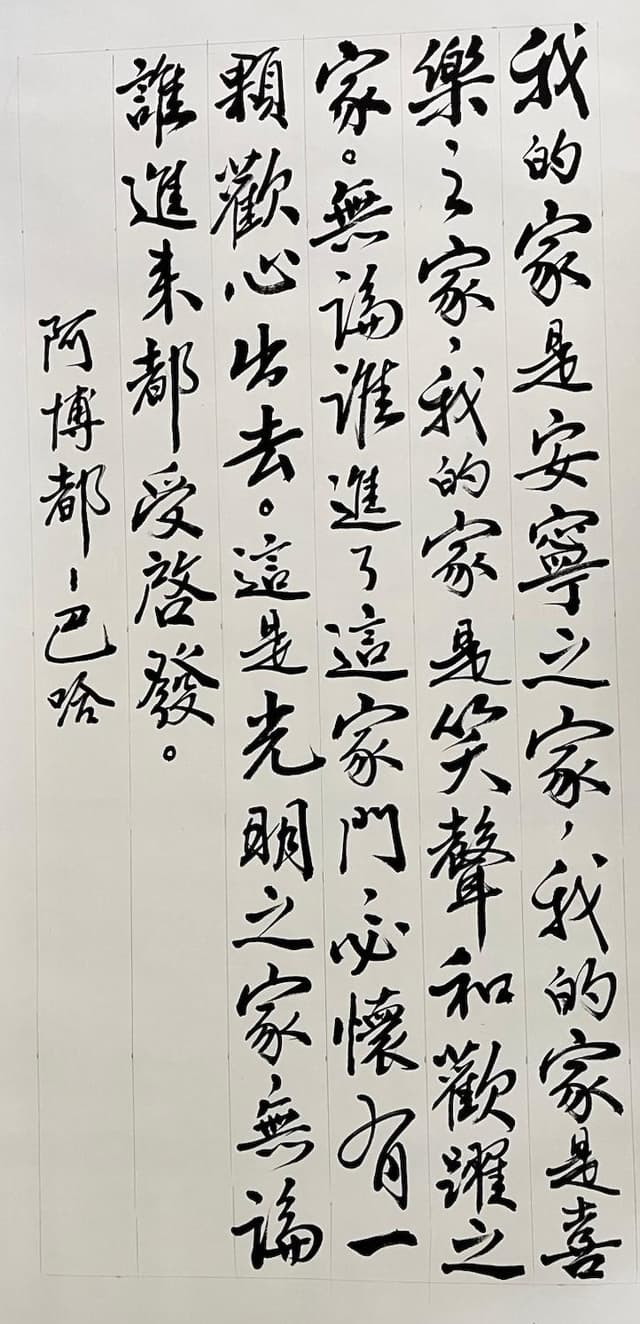 我的家是安寧之家，我的家是喜
樂之家，我的家是笑聲和歡躍之
家。無論誰進了這家門，必懷有一
顆歡心出去。這是光明之家，無論
誰進來都受啓發。
阿博都-巴哈